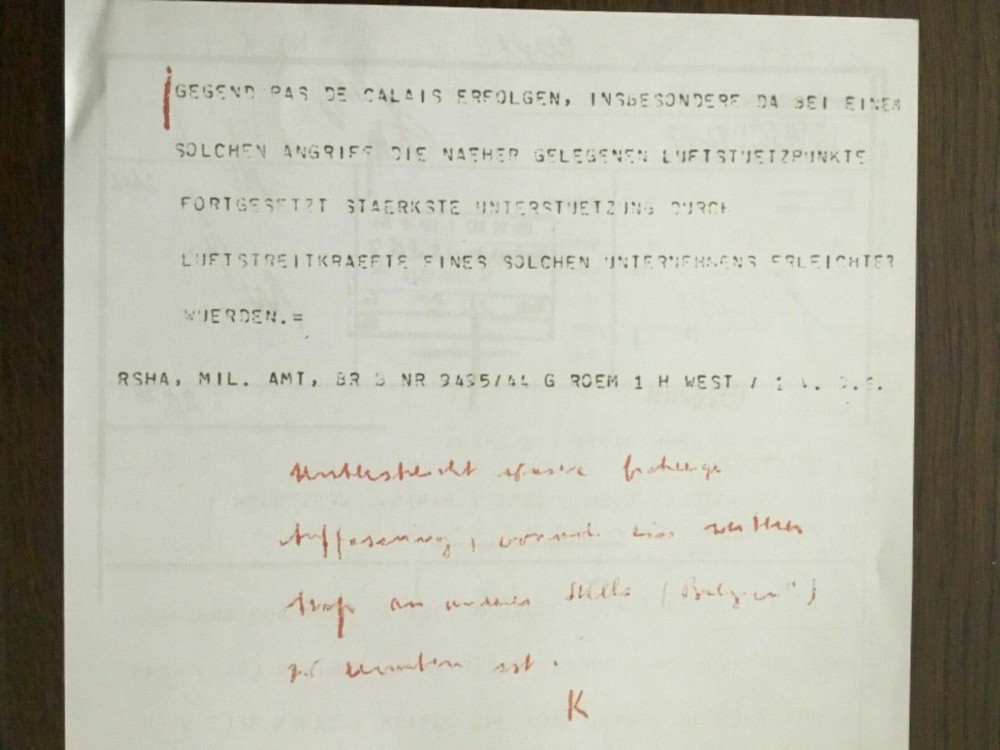 GEGEND PAS DE CALAIS ERFOLGEN, INSBESONDERE DA BEI EINEM
SOLCHEN ANGRIFF DIE NAEHER GELEGENEN LUFTSTUETZPUNKTE
FORTGESETZT STAERKSTE UNTERSTUETZUNG DURCH
LUFTSTREITKRAEFTE EINES SOLCHEN UNTERNEHMENS ERLEICHTER
WUERDEN.=
RSHA, MIL. AMT, BR B NR 9495/44 G ROEM 1 H WEST /
Unterstreicht unsere bisherige
Auffassung, wonach ein weiterer
an anderer Stelle (Belgien")
zu erwarten ist.
K